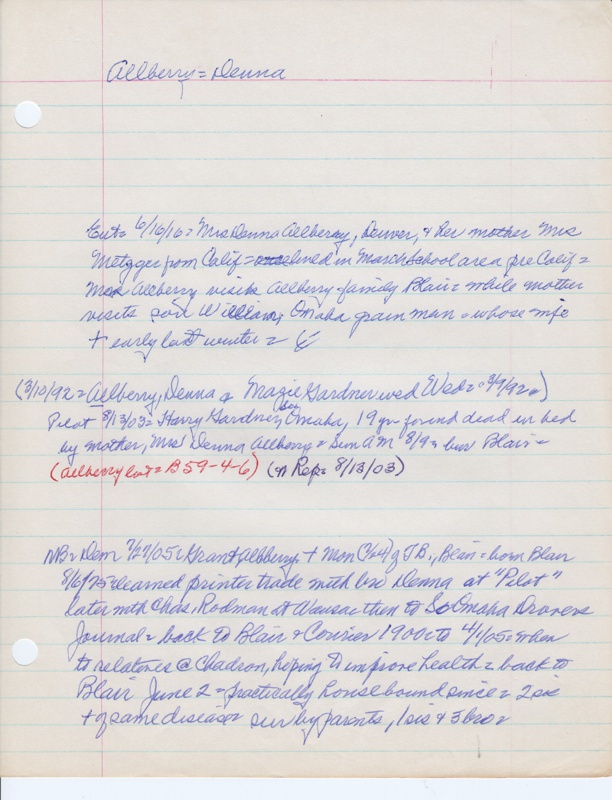 Allberry = Denna
Ent = 6/16/16 = Mrs Denna Allberry, Denver, & her mother Mrs
Metzger from Calif = lived in March school area pre Calif =
Mrs Allberry visits Allberry family Blair = while mother
visits son William, Omaha grain man = whose wife
+ early last winter =
(3/10/92 = Allberry, Denna & Mazie Gardner wed Wed = 3/9/92 =)
Pilot 8/13/03 = Harry Gardner, So Omaha, 19 yr found dead in bed
by mother, Mrs Denna Allberry = Sun AM 8/9 = bur Blair =
(Allberry lot = B 59-4-6) (Rep = 8/13/03)
NB = Dem 7/27/05 = Grant Allberry, + Mon (24) of TB., Blair = born Blair
8/6/75 = learned printer trade with bro Denna at "Pilot"
later with Chas. Rodman at Wausau then to So Omaha Drovers
Journal = back to Blair & Courier 1900 = to 4/1/05 = when
to relatives @ Chadron, hoping to improve health = back to
Blair June 2 = practically housebound since = 2 sis
+ of same disease = sur by parents, 1 sis & 3 bro =